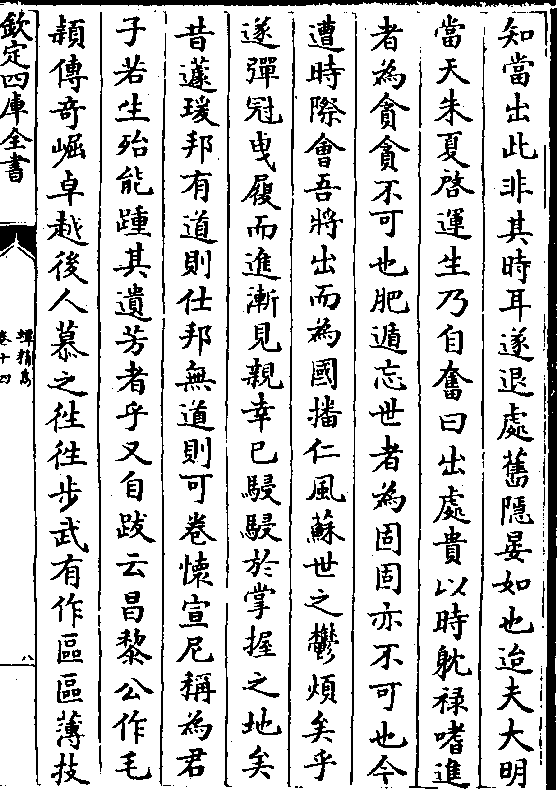 知當出此非其時耳遂退處舊隱晏如也迨夫大明
當天朱夏啓運生乃自奮曰出處貴以時躭祿嗜進
者為貪貪不可也肥遁忘世者為固固亦不可也今
遭時際會吾將出而為國播仁風蘇世之鬱煩矣乎
遂彈冠曳履而進漸見親幸已駸駸於掌握之地矣
昔蘧瑗邦有道則仕邦無道則可卷懷宣尼稱為君
子若生殆能踵其遺芳者乎又自跋云昌黎公作毛
頴傳奇崛卓越後人慕之徃徃步武有作區區薄技
欽定四庫全書
卷十四
八